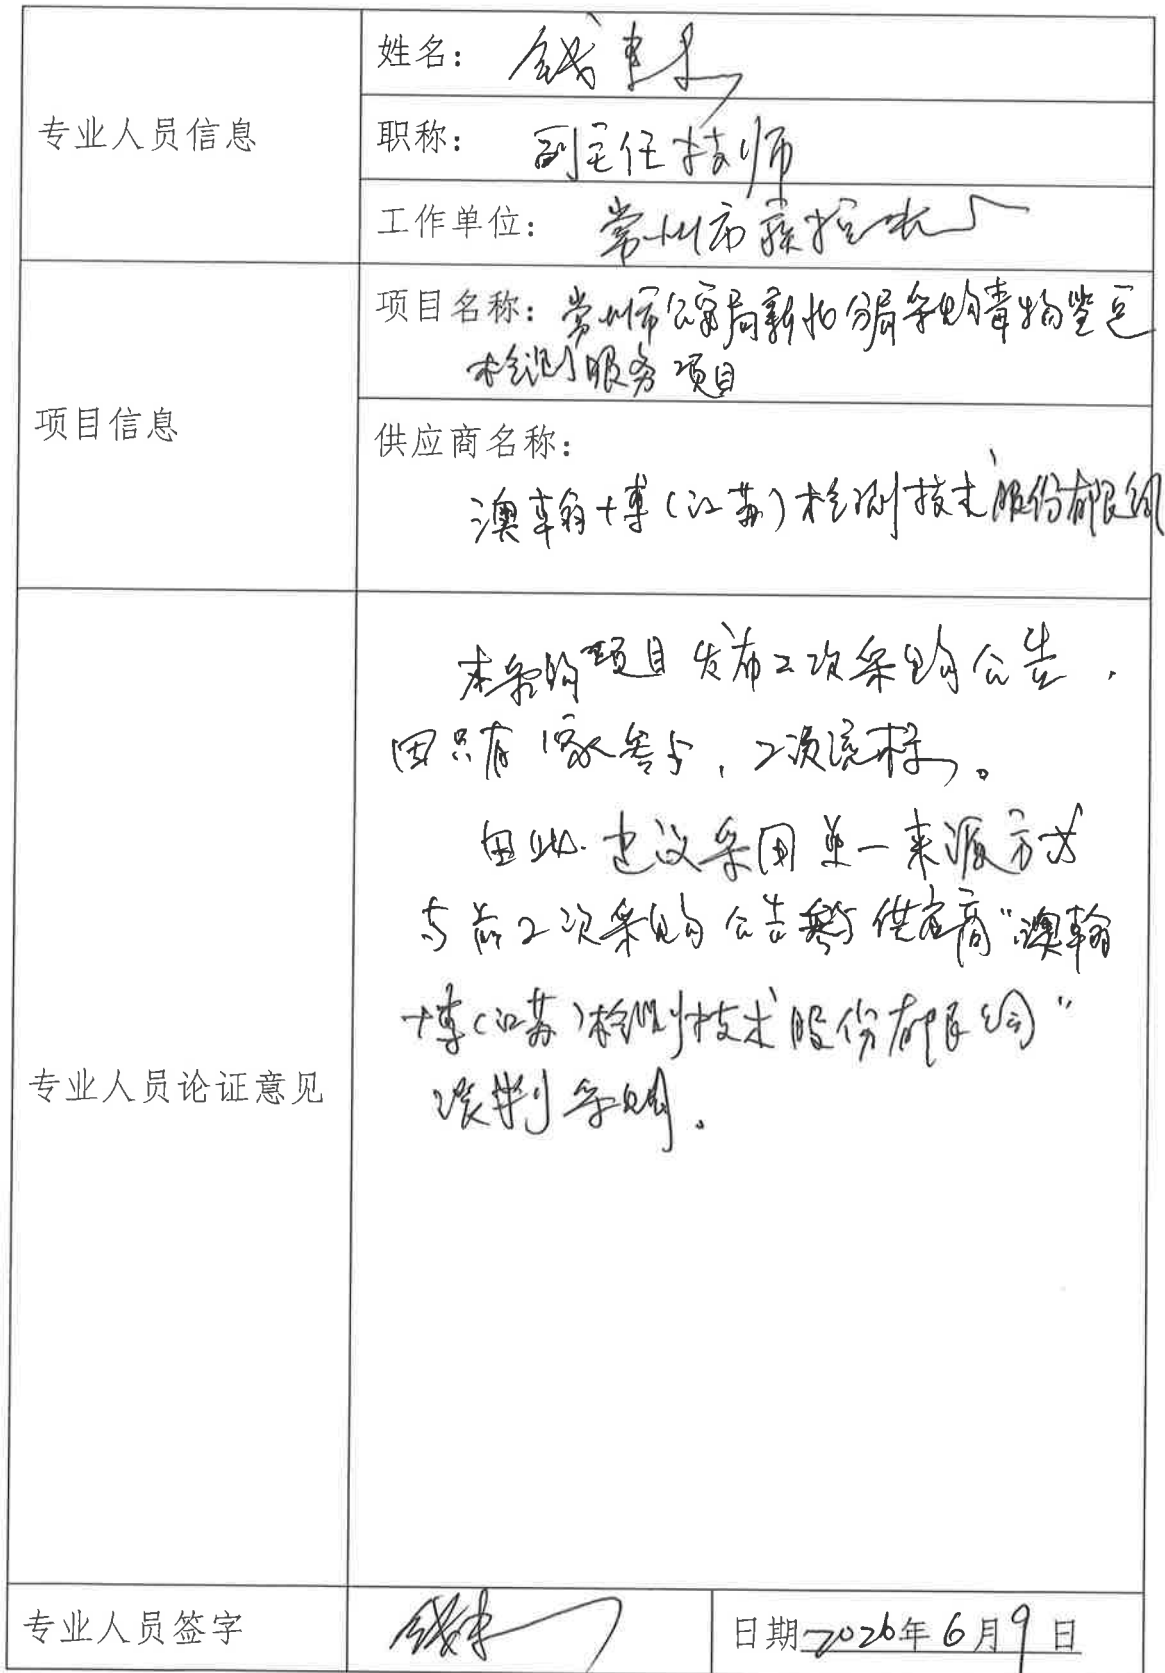 专业人员信息
姓名：钱
职称：副主任技师
工作单位：常州市疾控中心
项目信息
项目名称：常州市公安局新北分局采购毒物鉴定
检测服务项目
供应商名称：
澳翰博（江苏）检测技术股份有限公司
专业人员论证意见
本采购项目发布2次采购公告，
因只有1家参与，2次流标。
因此建议采用单一来源方式
与前2次采购公告参与供应商“澳翰
博（江苏）检测技术股份有限公司”
谈判采购。
专业人员签字 钱
日期 2026年6月9日